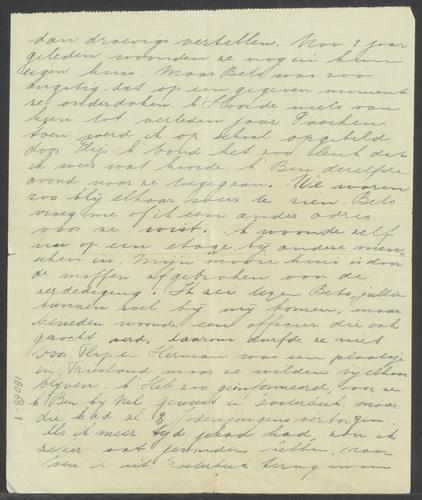 dan droevigs vertellen. Nov. 2 jaar
geleden, woonden ze nog in hun
eigen huis. Maar Bets was zoo
angstig, dat op een gegeven moment
ze onderdoken. Ik hoorde niets van
hen tot verleden jaar Paschen.
Toen werd ik op school opgebeld
door Flip. Ik vond het zoo leuk dat
ik weer wat hoorde. Ik Ben dezelfde
avond naar ze toegegaan. We waren
zoo blij elkaar weer te zien. Bets
vroeg me of ik een ander adres
voor ze wist. Ik woonde zelf
nu op een etage bij andere men-
schen in. Mijn mooie huis is door
de moffen afgebroken voor de
verdediging. Ik zei tegen Bets, jullie
kunnen wel bij mij komen, maar
beneden woonde een officier die ook
gezocht werd, daarom durfde ze niet
Voor Flip en Herman was een plaatsje
in Friesland, maar ze wilden bij elkaar
blijven. Ik Heb zoo geïnformeerd, voor ze
Ik Ben bij Nel geweest in Oosterbeek, maar
die had al 3 Jodenjongens verborgen.
Als ik meer tijd gehad had, zou ik
zeker wat gevonden hebben. Maar
toen ik uit Oosterbeek terug kwam
18068-1